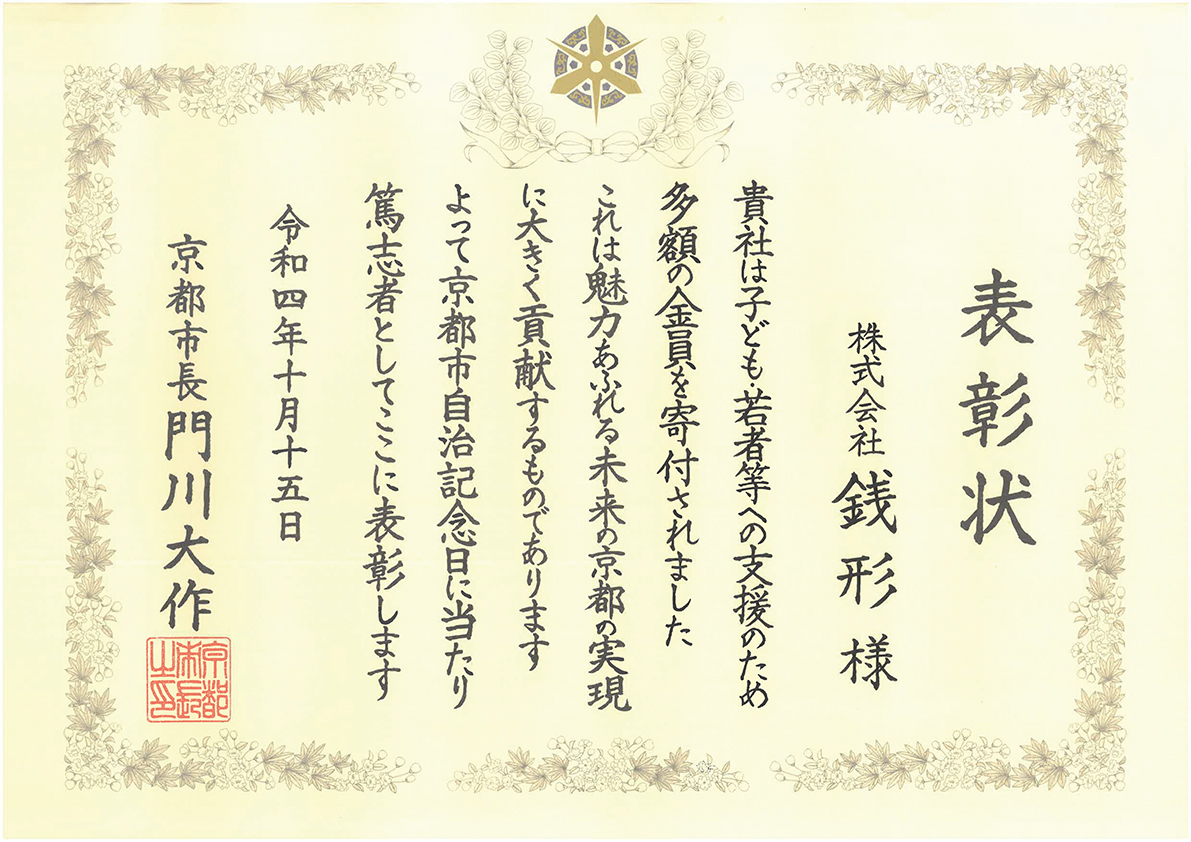 表彰状
株式会社 銭形様
貴社は子ども・若者等への支援のため
多額の金員を寄付されました
これは魅力あふれる未来の京都の実現
に大きく貢献するものであります
よって京都市自治記念日に当たり
篤志者としてここに表彰します
令和四年十月十五日
京都市長 門川大作
京都
市長
之印